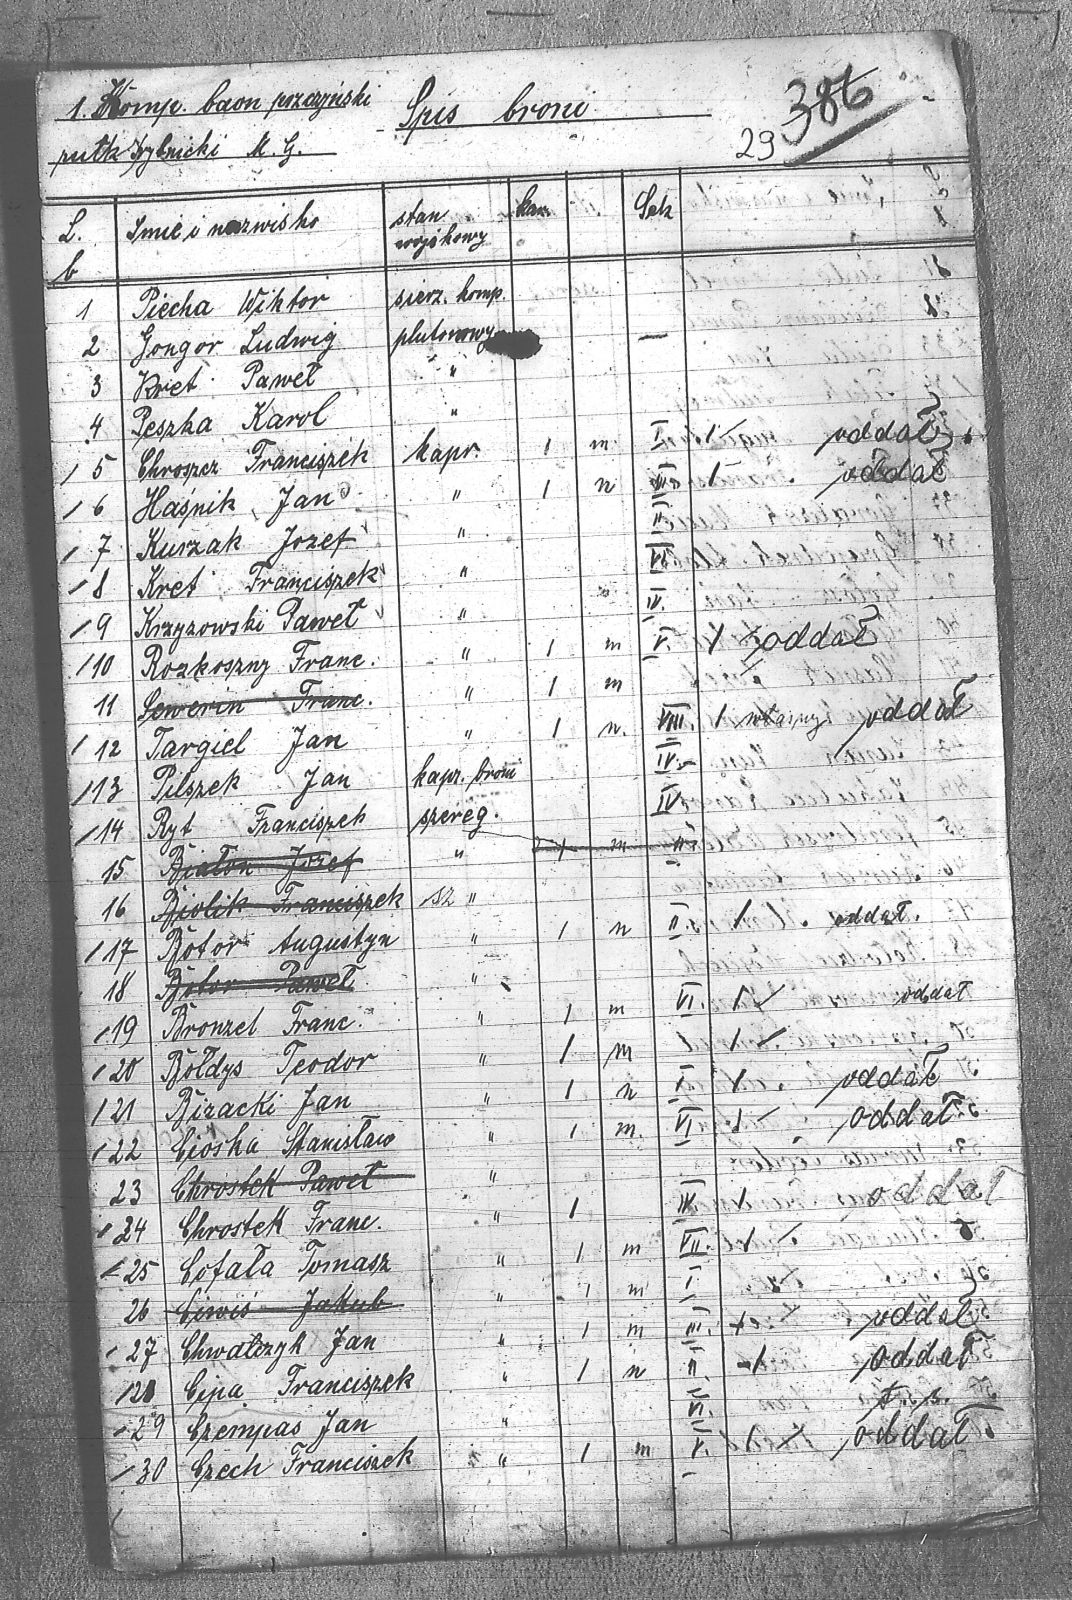 1. Komp. baon pszczyński
pułk Rybnicki M. G.
Spis broni
29 386
L. b Imie i nazwisko stan wojskowy kar. Sek
1 Piecha Wiktor sierz. komp.
2 Gongor Ludwig plutonowy —
3 Kret Paweł "
4 Peszka Karol "
/ 5 Chroszcz Franciszek kapr. 1 m I 1 oddał
/ 6 Haśnik Jan " 1 n III 1 oddał
/ 7 Kurzak Jozef " II
/ 8 Kret Franciszek " VI
/ 9 Krzyzowski Paweł " IV.
/ 10 Rozkoszny Franc. " 1 m V. 1 oddał
11 Sewerin Franc. " 1 m
/ 12 Targiel Jan " 1 n. VIII 1 własny oddał
/ 13 Pilszek Jan kapr. broni IV
/ 14 Ryt Franciszek szereg. IV
15 Białon Jozef " 1 m II
16 Biolik Franciszek sz "
/ 17 Botor Augustyn " 1 n II. 1 oddał.
18 Botor Paweł "
/ 19 Bronzel Franc. " 1 m VI. 1 oddał
/ 20 Bołdys Teodor " 1 m I 1
/ 21 Bizacki Jan " 1 n I 1 oddał
/ 22 Cioska Stanisław " 1 m. VI 1 oddał
23 Chrostek Paweł "
/ 24 Chrostek Franc. " 1 IV 1 oddal
/ 25 Cofała Tomasz " 1 m VII. 1
26 Ciwiś Jakub " 1 m I
/ 27 Chwałczyk Jan " 1 m III. oddał
/ 28 Cipa Franciszek " 1 n II 1 oddał
/ 29 Czempas Jan " VI
/ 30 Czech Franciszek " 1 m V. oddał